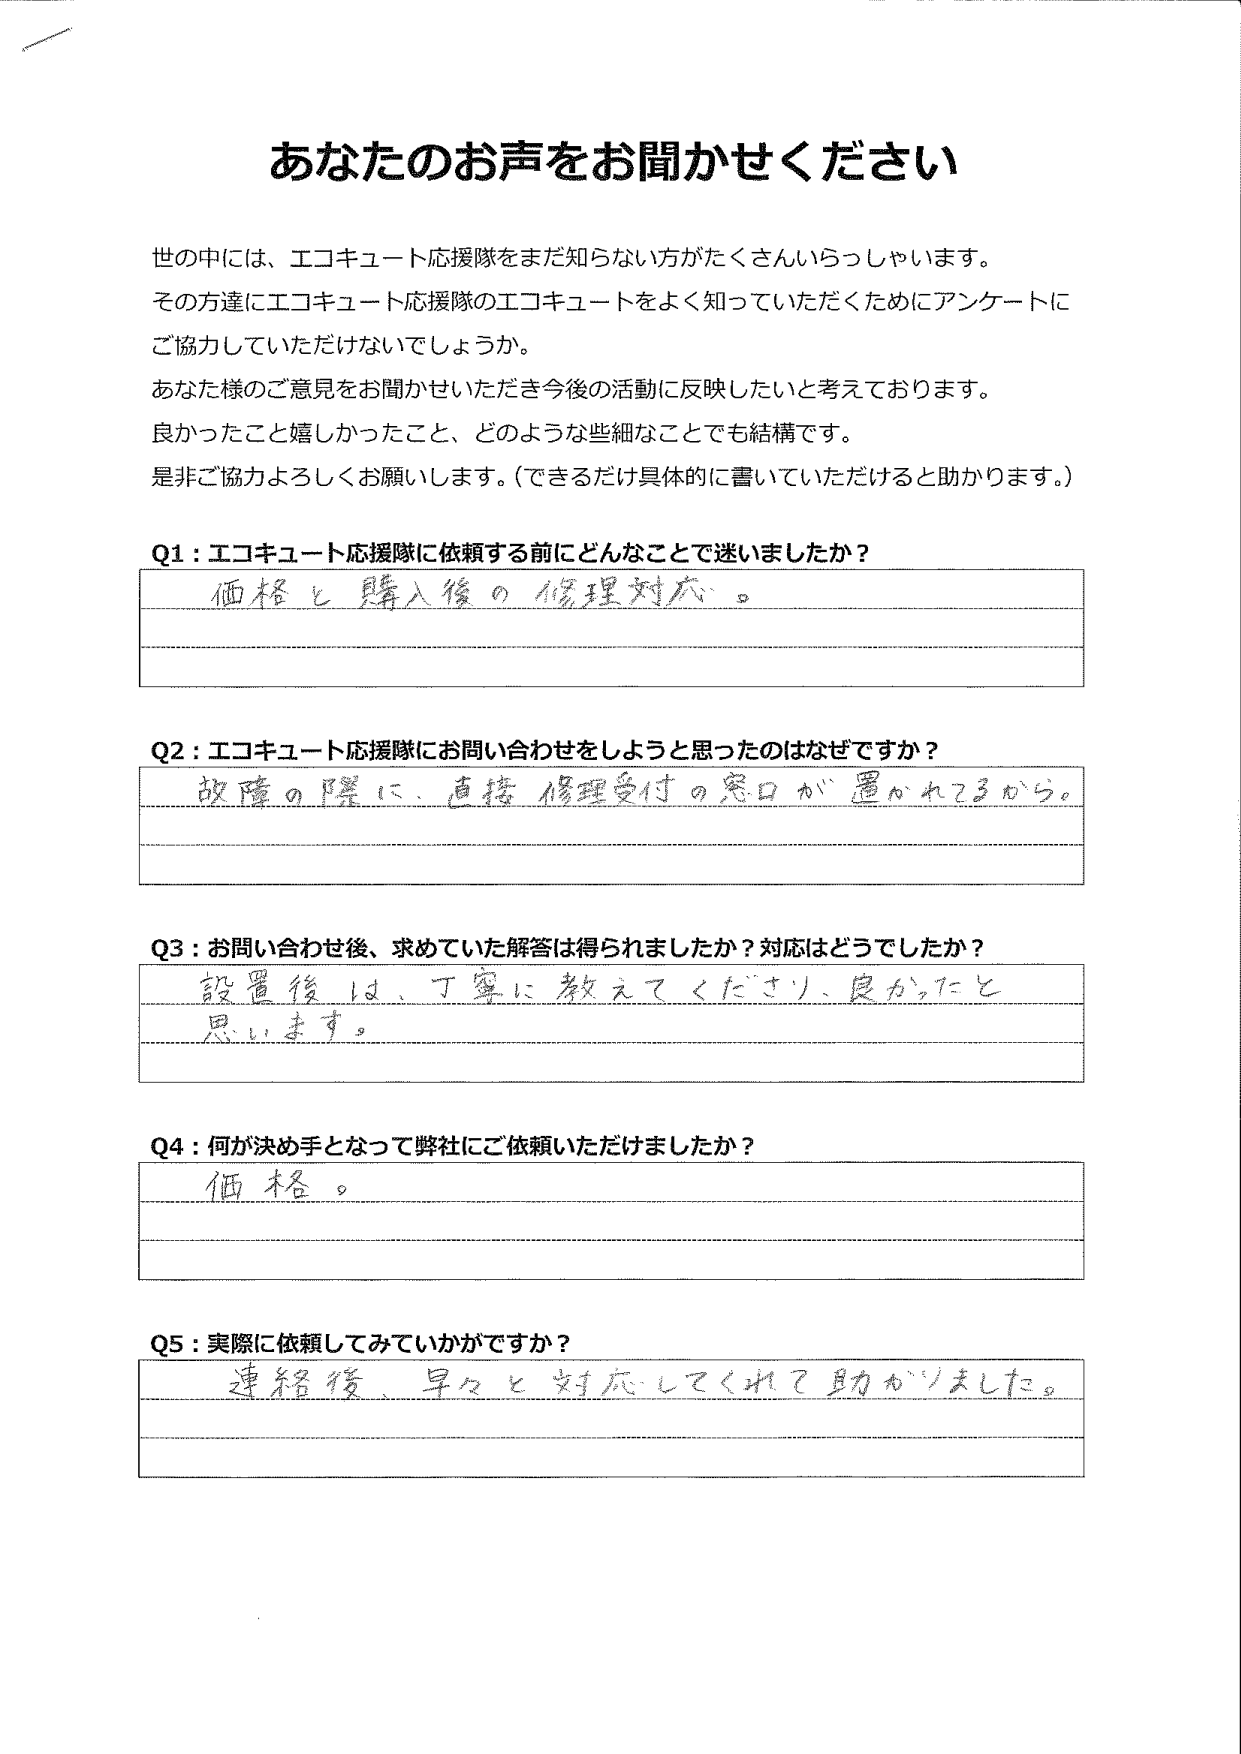 あなたのお声をお聞かせください
世の中には、エコキュート応援隊をまだ知らない方がたくさんいらっしゃいます。
その方達にエコキュート応援隊のエコキュートをよく知っていただくためにアンケートに
ご協力していただけないでしょうか。
あなた様のご意見をお聞かせいただき今後の活動に反映したいと考えております。
良かったこと嬉しかったこと、どのような些細なことでも結構です。
是非ご協力よろしくお願いします。（できるだけ具体的に書いていただけると助かります。）
Q1：エコキュート応援隊に依頼する前にどんなことで迷いましたか？
価格と購入後の修理対応。
Q2：エコキュート応援隊にお問い合わせをしようと思ったのはなぜですか？
故障の際に、直接修理受付の窓口が置かれてるから。
Q3：お問い合わせ後、求めていた解答は得られましたか？対応はどうでしたか？
設置後は、丁寧に教えてくださり、良かったと
思います。
Q4：何が決め手となって弊社にご依頼いただけましたか？
価格。
Q5：実際に依頼してみていかがですか？
連絡後、早々と対応してくれて助かりました。